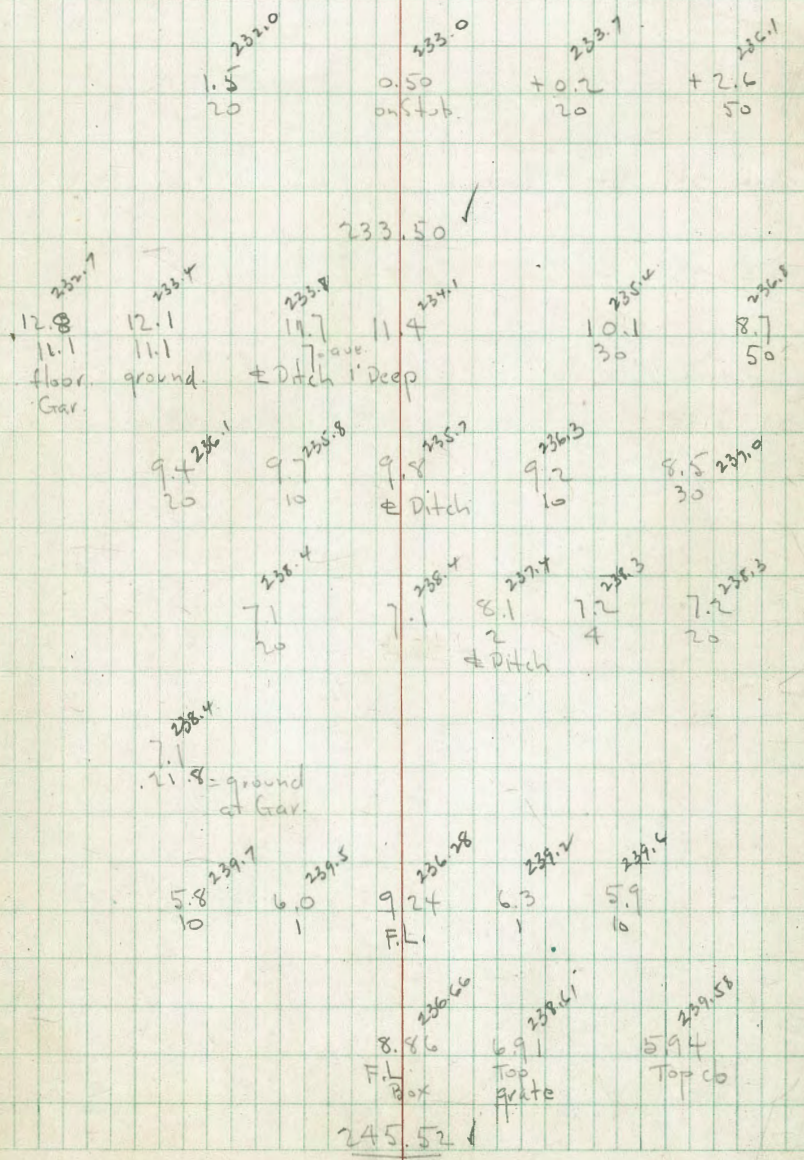 232.0 233.0 233.7 236.1
1.5 0.50 +0.2 +2.6
20 on Stub. 20 50
233.50 ✓
232.7 233.4 233.8 234.1 235.4 236.8
12.8 12.1 11.7 11.4 10.1 8.7
11.1 11.1 7 ave. 30 50
floor ground. ℄ Ditch 1' Deep
Gar.
236.1 235.8 235.7 236.3 237.0
9.4 9.7 9.8 9.2 8.5
20 10 ℄ Ditch 10 30
238.4 238.4 237.4 238.3 238.3
7.1 7.1 8.1 7.2 7.2
20 2 4 20
℄ Ditch
238.4
7.1
21.8 = ground
at Gar.
239.7 239.5 236.28 239.2 239.6
5.8 6.0 9.24 6.3 5.9
10 1 F.L. 1 10
236.66 238.61 239.58
8.86 6.91 5.94
F.L. Top Top co
Box grate
245.52 ✓